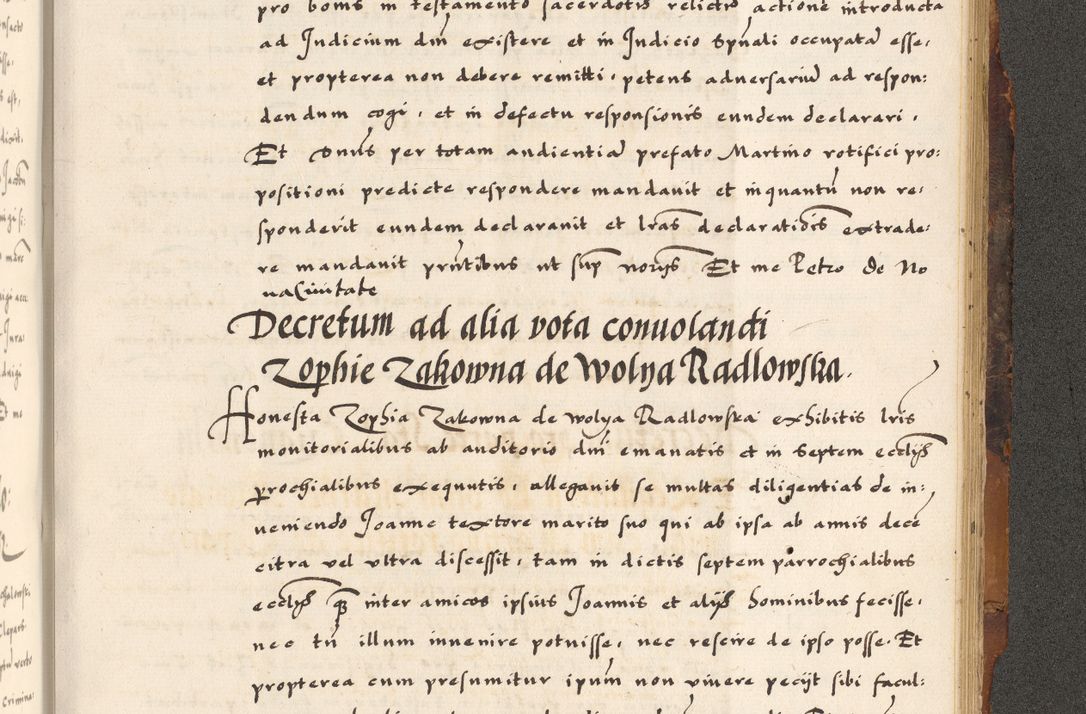 pro bonis in testamento sacerdotis relictis actione introducta
ad Judicium dni existere et in Judicio spuali occupata esse,
et propterea non debere remitti, petens adversariu ad respon:
dendum cogi, et in defectu responsionis eundem declarari,
Et Dnus per totam audientia prefato Martino rotifici pro:
positioni predicte respondere mandavit et inquantu non re:
sponderit eundem declaravit et lras declarationis extrade:
re mandavit pntibus ut sup noris Et me Petro de No
va Civitate
Decretum ad alia vota convolandi
Zophie Zakowna de Wolya Radlowska.
Honesta Zophia Zakowna de Wolya Radlowska exhibitis lris
monitorialibus ab auditorio dni emanatis et in septem ecclijs
prochialibus exequutis, allegavit se multas diligentias de in:
veniendo Joanne textore marito suo qui ab ipsa ab annis dece
citra vel ultra discessit, tam in dictis septem parrochialibus
ecclijs qz inter amicos ipsius Joannis et alijs hominibus fecisse,
nec tn illum invenire potuisse, nec rescire de ipso posse. Et
propterea cum presumitur ipum non vivere pecijt sibi facul: